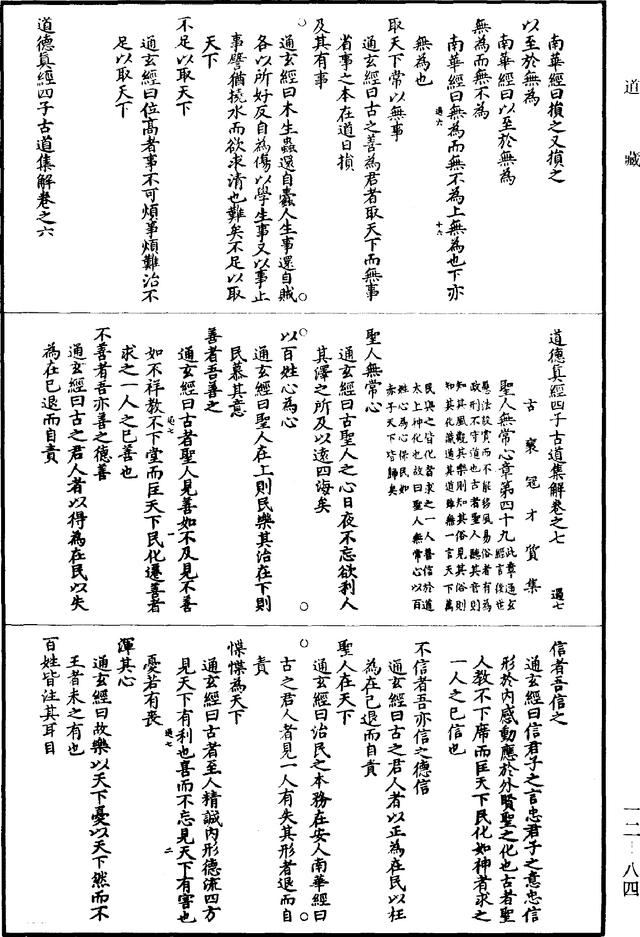 道藏
南華經曰損之又損之
以至於無為
南華經曰以至於無為
無為而無不為
南華經曰無為而無不為上無為也下亦
過六
十六
無為也
取天下常以無事
通玄經曰古之善為君者取天下而無事
省事之本在道日損
及其有事
通玄經曰木生蟲還自蠹人生事還自賊
各以所好反自為傷以學生事又以事止
事譬猶撓水而欲求清也難矣不足以取
天下
不足以取天下
通玄經曰位高者事不可煩事煩難治不
足以取天下
道德真經四子古道集解卷之六
道德真經四子古道集解卷之七
過七
古襄寇才質集
聖人無常心章第四十九
此章通玄
經言後世
懸法設賞而不能移風易俗者有為
政刑不守道也古者聖人聽其音則
知其風觀其樂則知其俗見其俗則
知其化識過其道雖無一言天下萬
民與之皆化當求之一人譽信於道
太上神化也故曰聖人無常心以百
姓心為心保民如
赤子天下皆歸矣
聖人無常心
通玄經曰古聖人之心日夜不忘欲利人
其澤之所及以遠四海矣
以百姓心為心
通玄經曰聖人在上則民樂其治在下則
民慕其意
善者吾善之
通玄經曰古者聖人見善如不及見不善
過七
一
如不祥教不下堂而匡天下民化遷善者
求之一人之已善也
不善者吾亦善之德善
通玄經曰古之君人者以得為在民以失
為在已退而自責
信者吾信之
通玄經曰信君子之言忠君子之意忠信
形於內感動應於外賢聖之化也古者聖
人教不下席而匡天下民化如神者求之
一人之已信也
不信者吾亦信之德信
通玄經曰古之君人者以正為在民以枉
為在已退而自責
聖人在天下
通玄經曰治民之本務在安人南華經曰
古之君人者見一人有失其形者退而自
責
惵惵為天下
通玄經曰古者至人精誠內形德流四方
見天下有利也喜而不忘見天下有害也
過七
二
憂若有喪
渾其心
通玄經曰故樂以天下憂以天下然而不
王者未之有也
百姓皆注其耳目
一二–八四